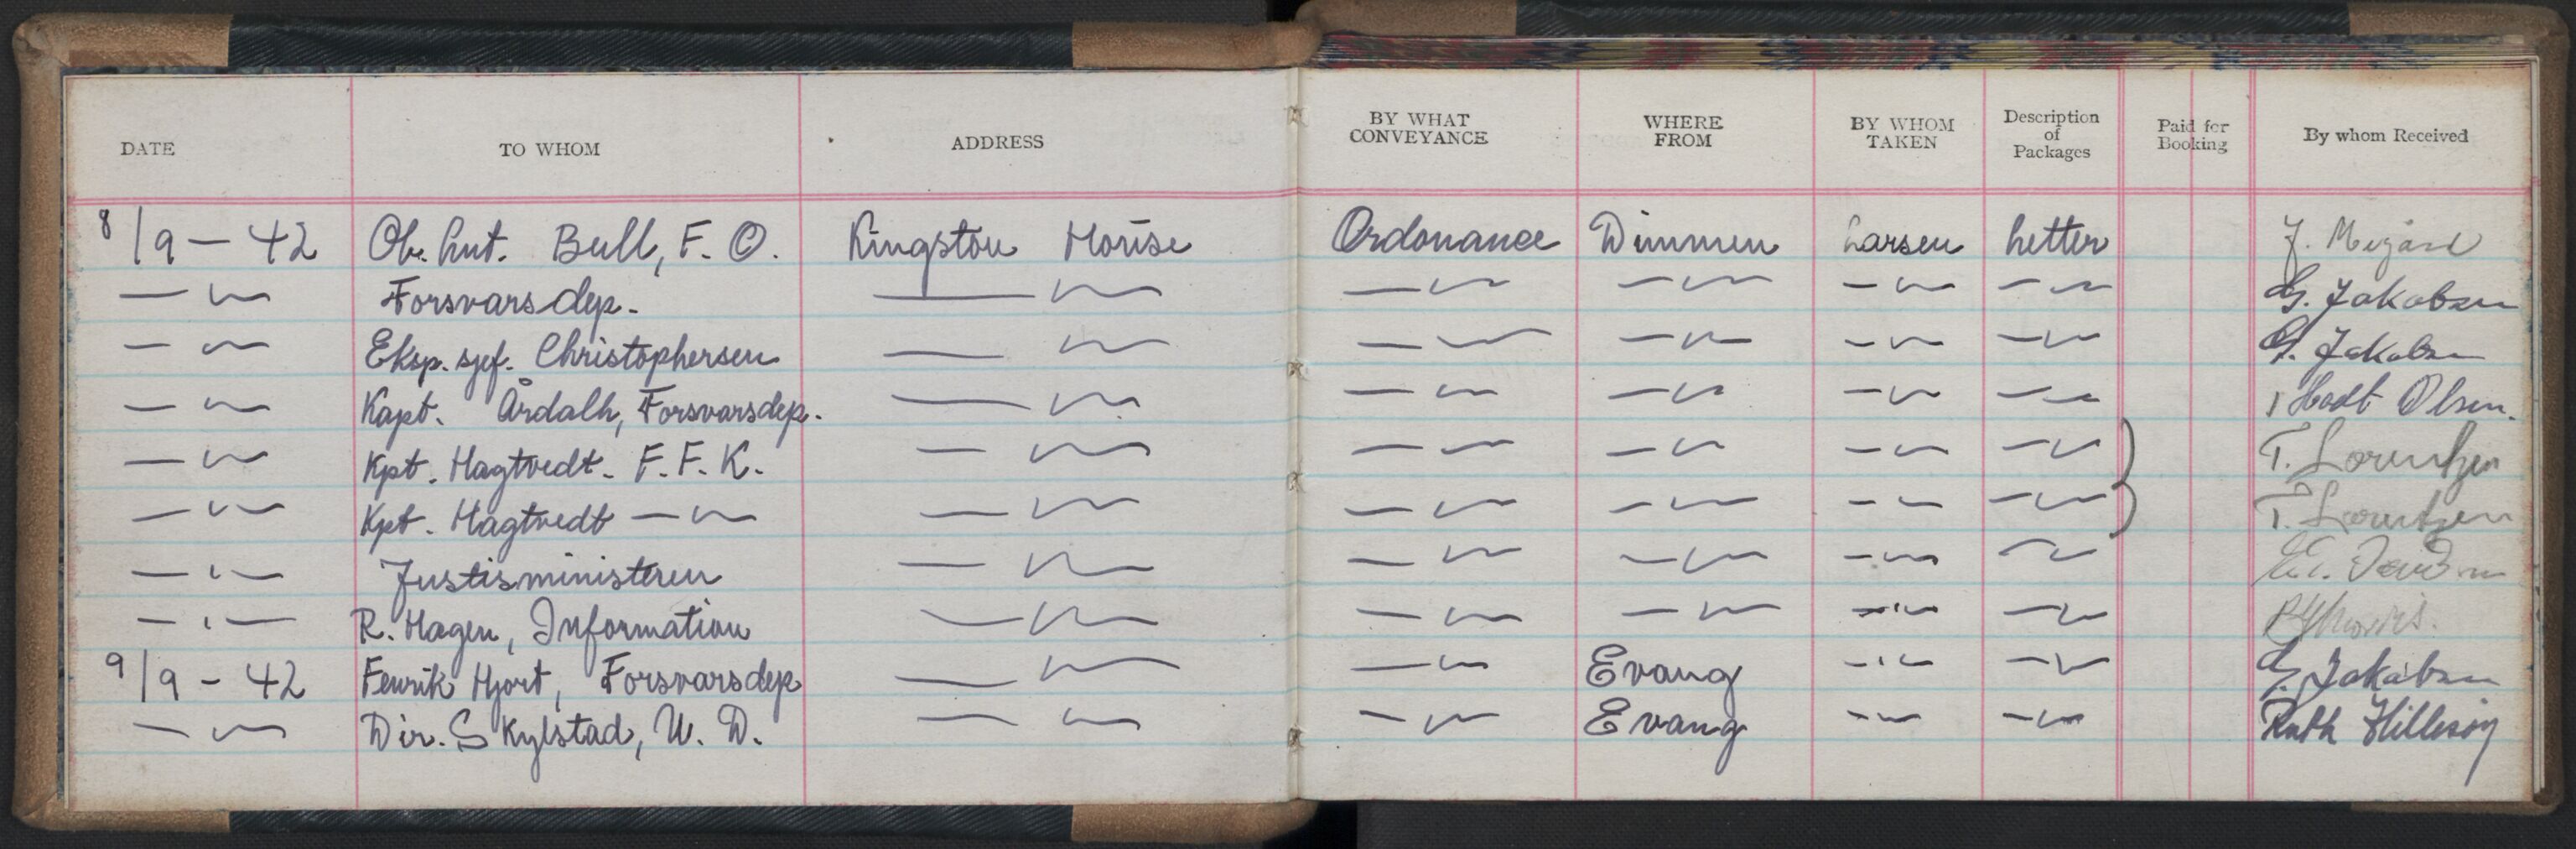 DATE TO WHOM ADDRESS BY WHAT CONVEYANCE WHERE FROM BY WHOM TAKEN Description of Packages Paid for Booking By whom Received
8/9 - 42 Ob. lut. Bull, F. O. Kingston House Ordonance Dimmen Larsen letter
— " — Forsvarsdep. — " — — " — — " — — " — — " — G. Jakobsen
— " — Eksp. sjef. Christophersen — " — — " — — " — — " — — " — G. Jakobsen
— " — Kapt. Årdalh, Forsvarsdep. — " — — " — — " — — " — — " — Olsen.
— " — Kpt. Hagtvedt - F. F. K. — " — — " — — " — — " — — " — T. Lorentzen
— " — Kpt. Hagtvedt — " — — " — — " — — " — — " — — " — T. Lorentzen
— " — Justisministeren — " — — " — — " — — " — — " —
— " — R. Hagen, Information — " — — " — — " — — " — — " —
9/9 - 42 Fenrik Hjort, Forsvarsdep — " — — " — Evang — " — — " — G. Jakobsen
— " — Dir. Skylstad, U. D. — " — — " — Evang — " — — " — Ruth Hillesøy